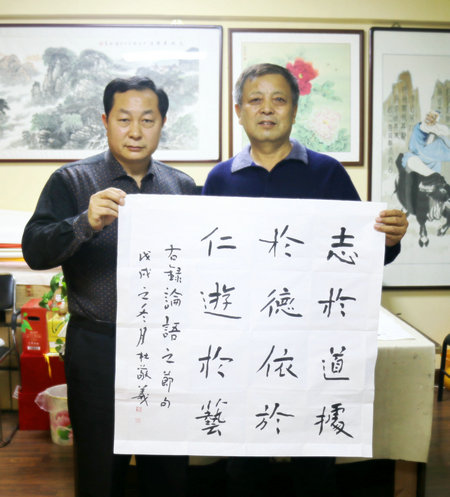 志於道據
於德依於
仁遊於藝
古錄論語之節句
戊戌之冬月杜敬義